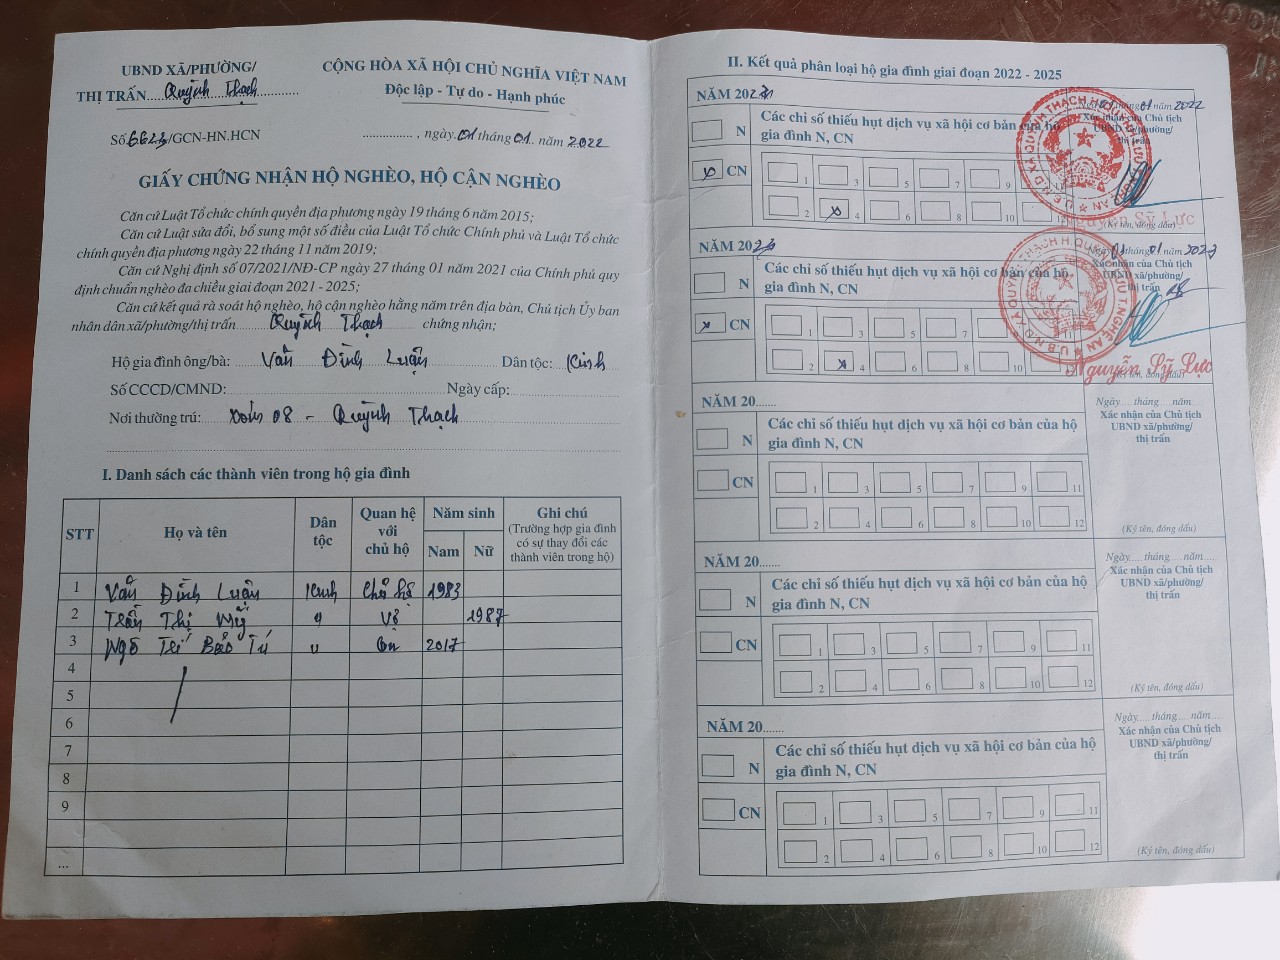 UBND XÃ/PHƯỜNG/
THỊ TRẤN Quỳnh Thạch
CỘNG HÒA XÃ HỘI CHỦ NGHĨA VIỆT NAM
Độc lập - Tự do - Hạnh phúc
Số 6623/GCN-HN.HCN
............ , ngày 01 tháng 01 năm 2022
GIẤY CHỨNG NHẬN HỘ NGHÈO, HỘ CẬN NGHÈO
Căn cứ Luật Tổ chức chính quyền địa phương ngày 19 tháng 6 năm 2015;
Căn cứ Luật sửa đổi, bổ sung một số điều của Luật Tổ chức Chính phủ và Luật Tổ chức
chính quyền địa phương ngày 22 tháng 11 năm 2019;
Căn cứ Nghị định số 07/2021/NĐ-CP ngày 27 tháng 01 năm 2021 của Chính phủ quy
định chuẩn nghèo đa chiều giai đoạn 2021 - 2025;
Căn cứ kết quả rà soát hộ nghèo, hộ cận nghèo hằng năm trên địa bàn, Chủ tịch Ủy ban
nhân dân xã/phường/thị trấn Quỳnh Thạch chứng nhận;
Hộ gia đình ông/bà: Văn Đình Luận Dân tộc: Kinh
Số CCCD/CMND: Ngày cấp:
Nơi thường trú: xóm 08 - Quỳnh Thạch
I. Danh sách các thành viên trong hộ gia đình
STT Họ và tên Dân tộc Quan hệ với chủ hộ Năm sinh Nam Nữ Ghi chú (Trường hợp gia đình có sự thay đổi các thành viên trong hộ)
1 Văn Đình Luận Kinh Chủ hộ 1983
2 Trần Thị Mỹ " Vợ 1987
3 Ngô Trí Bảo Tú " Con 2017
4
5
6
7
8
9
...
II. Kết quả phân loại hộ gia đình giai đoạn 2022 - 2025
NĂM 20
tháng 01 năm 2022
Xác nhận của Chủ tịch
UBND xã/phường/
thị trấn
N Các chỉ số thiếu hụt dịch vụ xã hội cơ bản của hộ
gia đình N, CN
x CN 1 3 5 7 9
2 x 4 6 8 10 12
Nguyễn Sỹ Lực
(Ký tên, đóng dấu)
NĂM 20
Ngày 01 tháng 01 năm 2023
Xác nhận của Chủ tịch
UBND xã/phường/
thị trấn
N Các chỉ số thiếu hụt dịch vụ xã hội cơ bản của hộ
gia đình N, CN
x CN 1 3 5 7 11
2 x 4 6 8 10
Nguyễn Sỹ Lực
(Ký tên, đóng dấu)
NĂM 20.......
Ngày..... tháng..... năm.....
Xác nhận của Chủ tịch
UBND xã/phường/
thị trấn
N Các chỉ số thiếu hụt dịch vụ xã hội cơ bản của hộ
gia đình N, CN
CN 1 3 5 7 9 11
2 4 6 8 10 12
(Ký tên, đóng dấu)
NĂM 20.......
Ngày..... tháng..... năm.....
Xác nhận của Chủ tịch
UBND xã/phường/
thị trấn
N Các chỉ số thiếu hụt dịch vụ xã hội cơ bản của hộ
gia đình N, CN
CN 1 3 5 7 9 11
2 4 6 8 10 12
(Ký tên, đóng dấu)
NĂM 20.......
Ngày..... tháng..... năm.....
Xác nhận của Chủ tịch
UBND xã/phường/
thị trấn
N Các chỉ số thiếu hụt dịch vụ xã hội cơ bản của hộ
gia đình N, CN
CN 1 3 5 7 9 11
2 4 6 8 10 12
(Ký tên, đóng dấu)